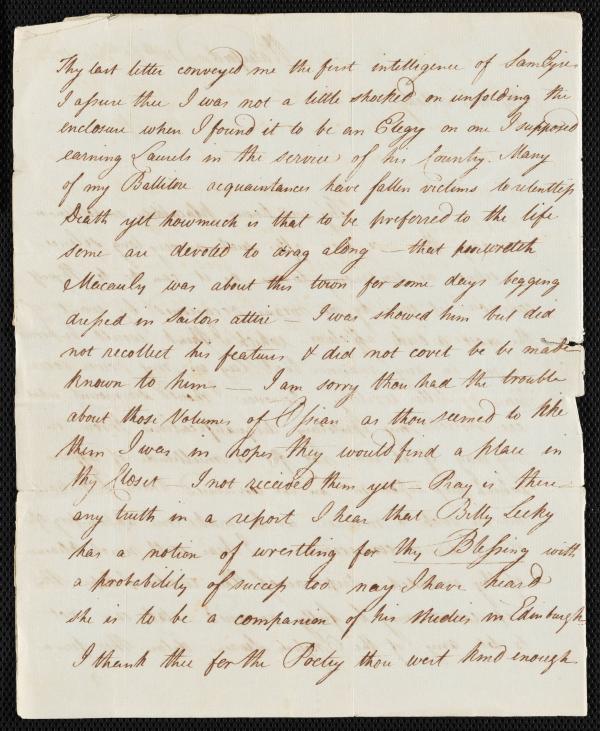 Thy last letter conveyed me the first intelligence of Sam Eyres
I assure thee I was not a little shocked on unfolding the
enclosure when I found it to be an Elegy on one I supposed
earning Laurels in the service of his Country. Many
of my Ballitore acquaintances have fallen victims to relentless
Death yet how much is that to be preferred to the life
some are devoted to drag along – that wretch
Macauly was about this town for some days begging
dressed in Sailors attire – I was showed him but did
not recollect his features & did not covet be be made
known to him – I am sorry thou had the trouble
about those Volumes of Ossian as thou seemed to like
them I was in hopes they would find a place in
thy Closet – I not received them yet – Pray is there
any truth in a report I hear that Billy Lecky
has a notion of wrestling for thy Blessing with
a probability of success too nay I have heard
she is to be a companion of his studies in Edinburgh
I thank thee for the Poetry thou wert kind enough